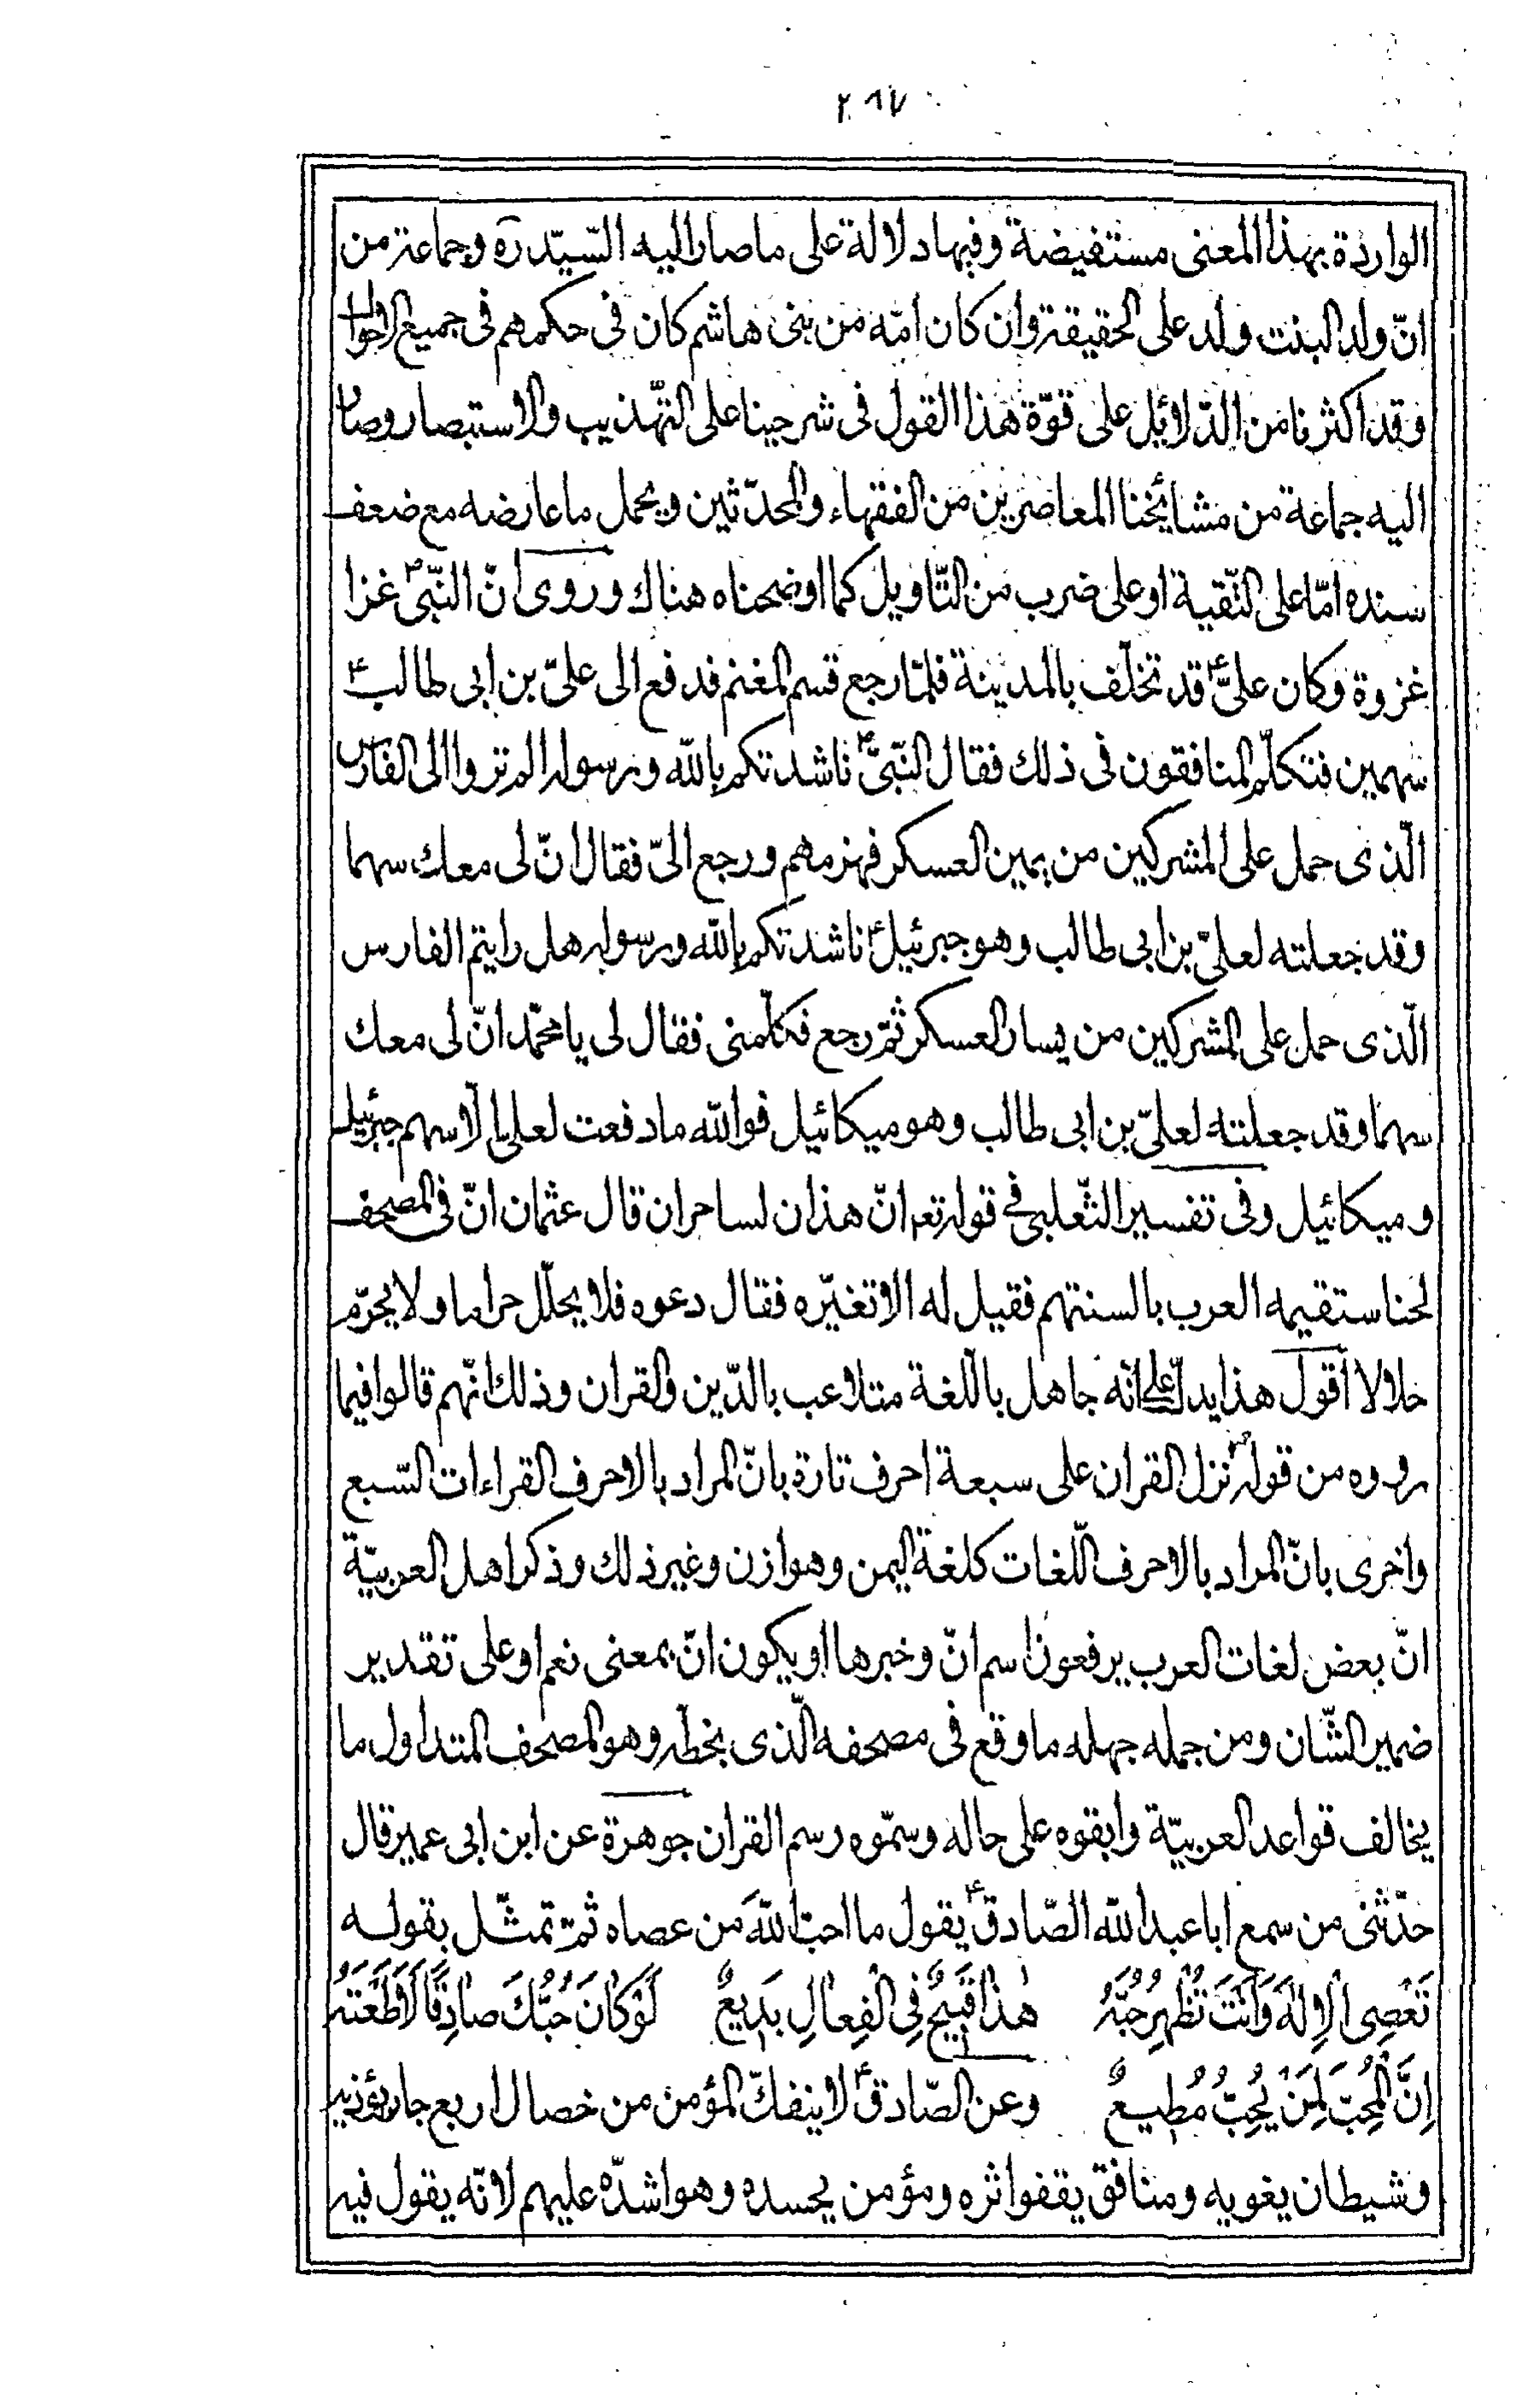 ٢٨٧
الواردة بهذا المعنى مستفيضة وفيها دلالة على ما صار اليه السّيّد ره وجماعة من
انّ ولد البنت ولد على الحقيقة وان كان امّه من بنى هاشم كان فى حكمهم فى جميع الاحوال
وقد اكثرنا من الدّلائل على قوّة هذا القول فى شرحينا على التّهذيب والاستبصار وصار
اليه جماعة من مشائخنا المعاصرين من الفقهاء والمحدّثين ويحمل ما عارضه مع ضعف
سنده امّا على التّقية او على ضرب من التّاويل كما اوضحناه هناك وروى انّ النّبىّ ص غزا
غزوة وكان علىّ ع قد تخلّف بالمدينة فلمّا رجع قسم المغنم فدفع الى علىّ بن ابى طالب ع
سهمين فتكلّم المنافقون فى ذلك فقال النّبىّ ص ناشدتكم بالله وبرسوله الم تروا الى الفارس
الّذى حمل على المشركين من يمين العسكر فهزمهم ورجع الىّ فقال انّ لى معك سهما
وقد جعلته لعلىّ بن ابى طالب وهو جبرئيل ع ناشدتكم بالله وبرسوله هل رايتم الفارس
الّذى حمل على المشركين من يسار العسكر ثمّ رجع فكلّمنى فقال لى يا محمّد انّ لى معك
سهما وقد جعلته لعلىّ بن ابى طالب وهو ميكائيل فوالله ما دفعت لعلى الّا سهم جبرئيل
وميكائيل وفى تفسير الثّعلبى فى قوله تعم انّ هذان لساحران قال عثمان انّ فى المصحف
لحنا ستقيمه العرب بالسنتهم فقيل له الا تغيّره فقال دعوه فلا يحلّل حراما ولا يحرّم
حلالا اقول هذا يدلّ على انّه جاهل باللّغة متلاعب بالدّين والقران وذلك انّهم قالوا فيما
رووه من قوله ص نزل القران على سبعة احرف تارة بانّ المراد بالاحرف القراءات السّبع
واخرى بانّ المراد بالاحرف اللّغات كلغة اليمن وهوازن وغير ذلك وذكر اهل العربيّة
انّ بعض لغات العرب يرفعون اسم انّ وخبرها او يكون انّ بمعنى نعم او على تقدير
ضمير الشّان ومن جمله جهله ما وقع فى مصحفه الّذى بخطّه وهو المصحف المتداول ما
يخالف قواعد العربيّة وابقوه على حاله وسمّوه رسم القران جوهرة عن ابن ابى عمير قال
حدّثنى من سمع ابا عبد الله الصّادق ع يقول ما احبّ اللهَ من عصاه ثمّ تمثّل بقوله
تَعْصِى الْاِلهَ وَاَنْتَ تُظْهِرُ حُبَّهُ هٰذا قَبِيحٌ فِى الْفِعالِ بَدِيعٌ لَوْ كانَ حُبُّكَ صادِقًا لَاَطَعْتَهُ
اِنَّ الْمُحِبَّ لِمَنْ يُحِبُّ مُطِيعٌ وعن الصّادق ع لا ينفكّ المؤمن من خصال اربع جار يؤذيه
وشيطان يغويه ومنافق يقفوا اثره ومؤمن يحسده وهو اشدّه عليهم لانّه يقول فيه